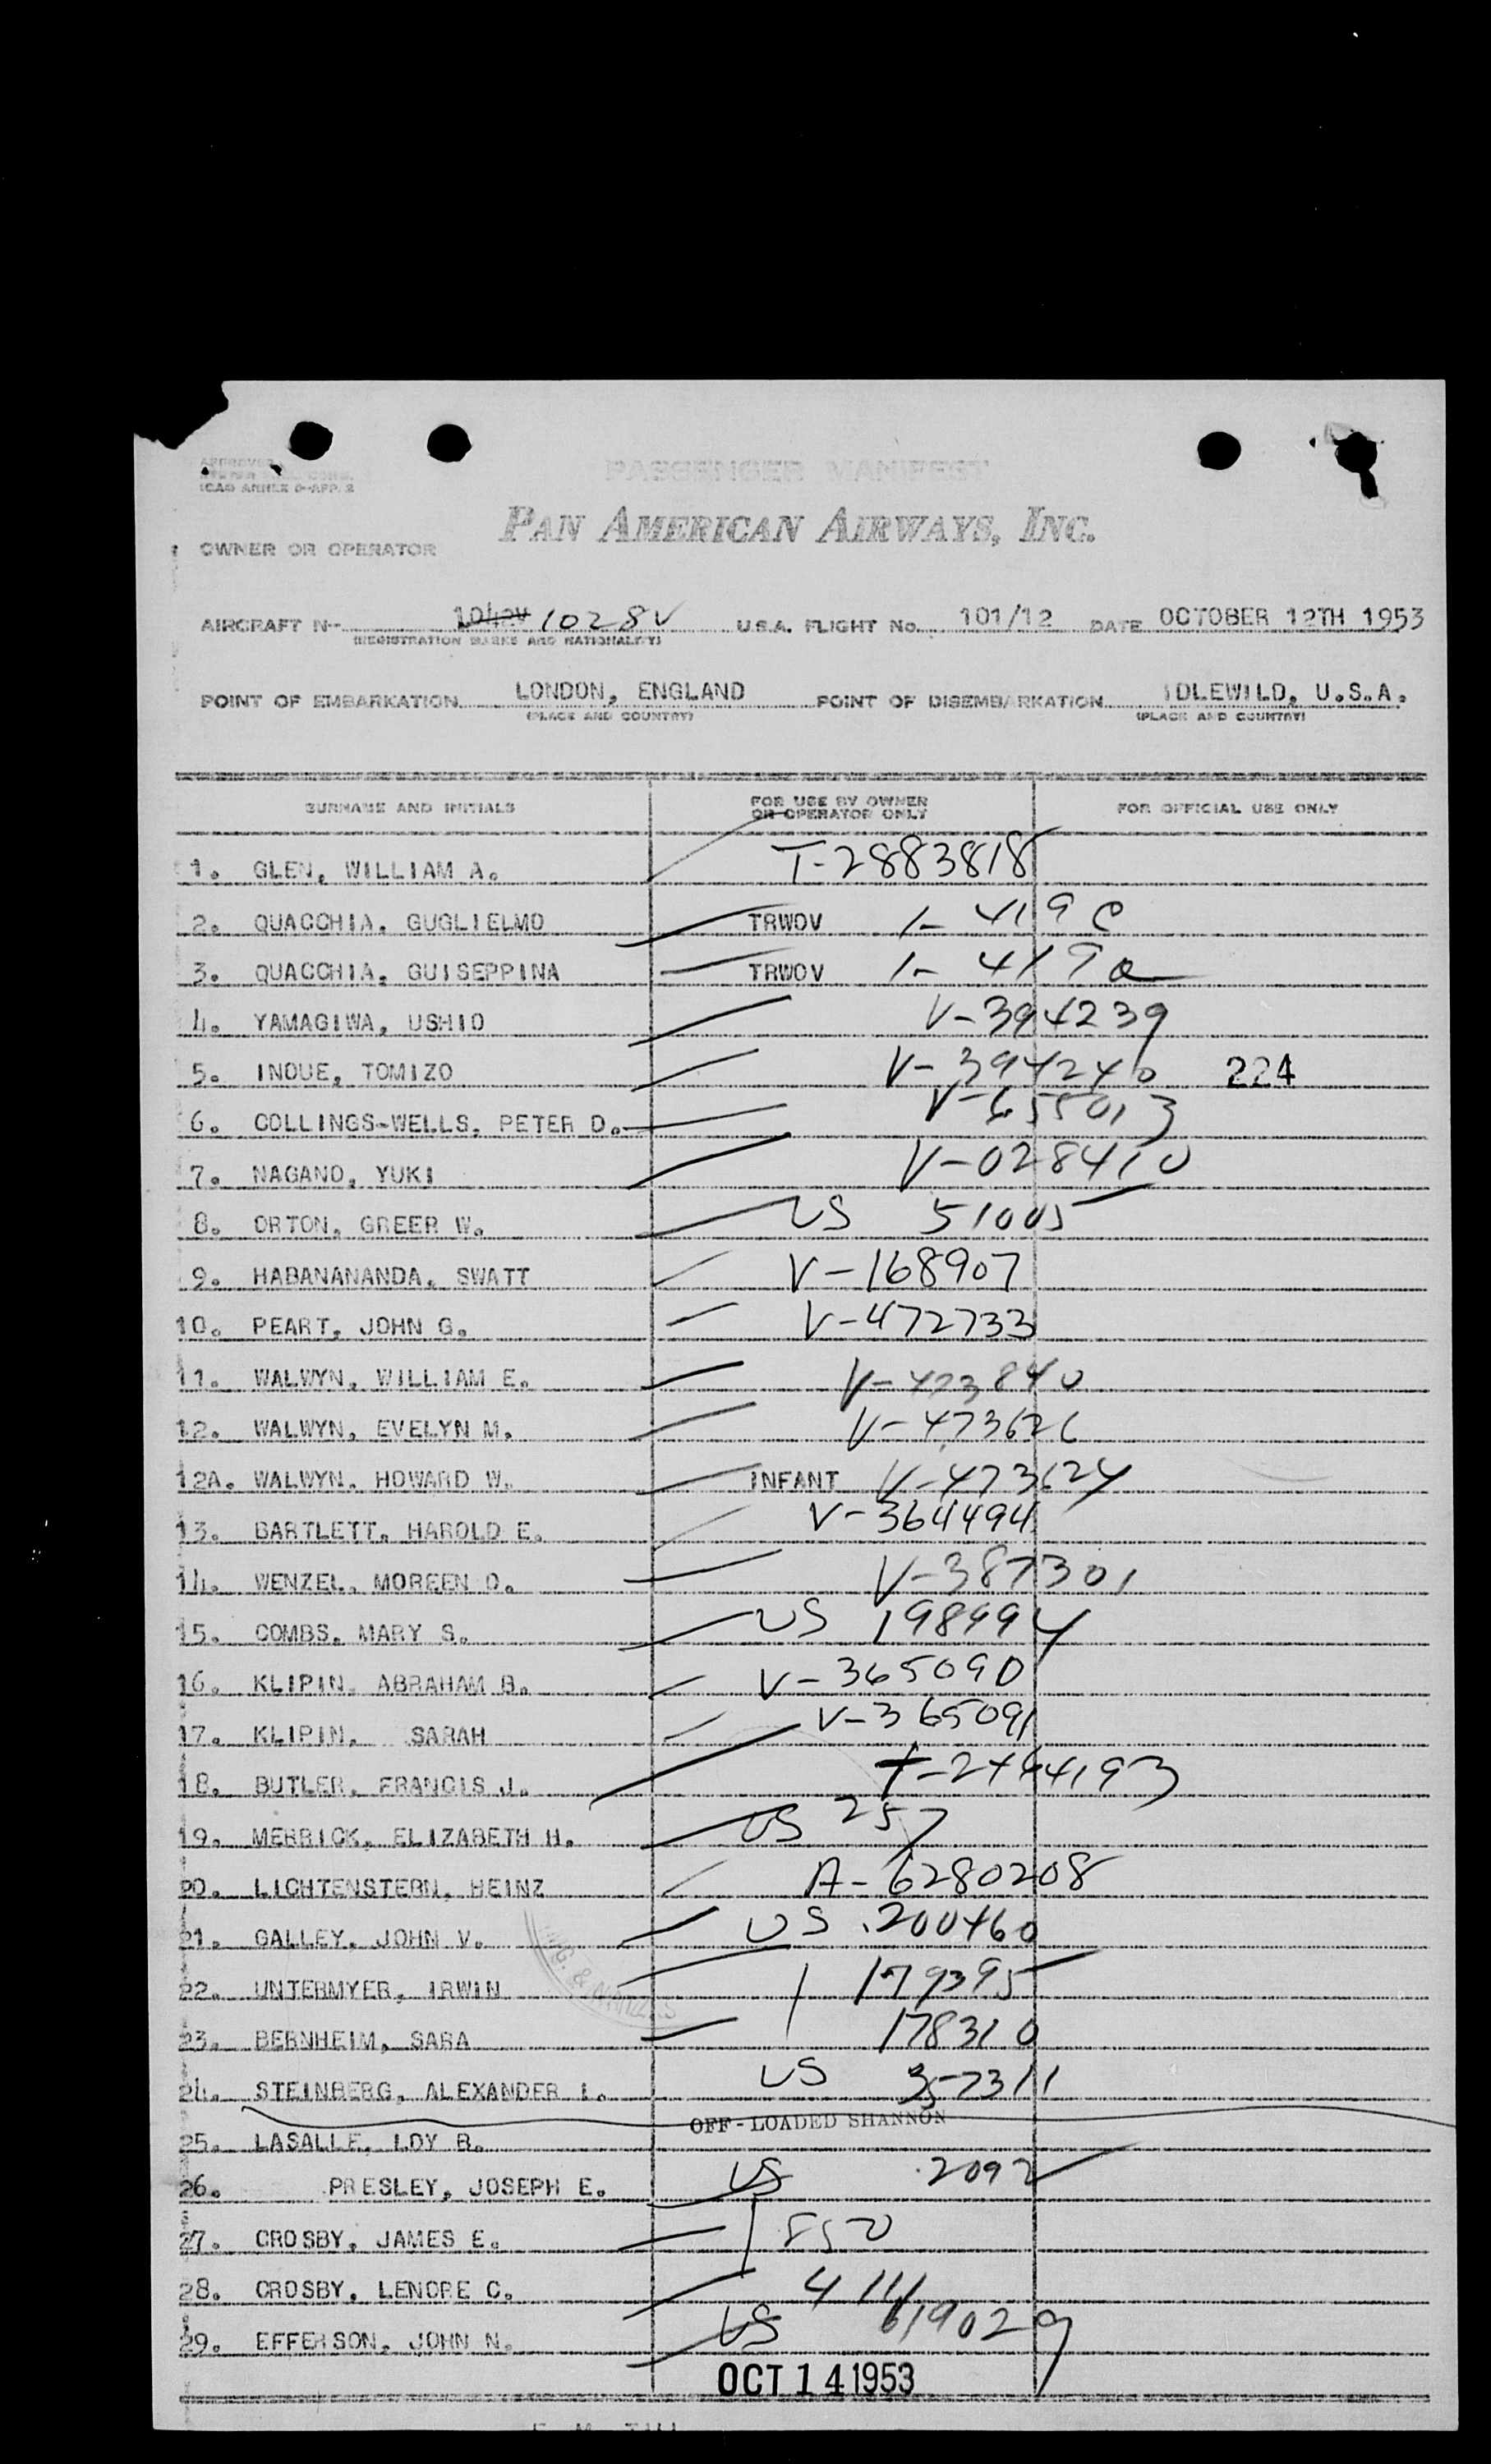 APPROVED
ICAO ANNEX 9-APP. 2
PASSENGER MANIFEST
PAN AMERICAN AIRWAYS, INC.
OWNER OR OPERATOR
AIRCRAFT N-- 1042V 1028V U.S.A. FLIGHT No. 101/12 DATE OCTOBER 12TH 1953
(REGISTRATION MARKS AND NATIONALITY)
POINT OF EMBARKATION LONDON, ENGLAND POINT OF DISEMBARKATION IDLEWILD, U.S.A.
(PLACE AND COUNTRY) (PLACE AND COUNTRY)
SURNAME AND INITIALS FOR USE BY OWNER OR OPERATOR ONLY FOR OFFICIAL USE ONLY
1. GLEN, WILLIAM A. T-2883818
2. QUACCHIA, GUGLIELMO TRWOV 1- 419 C
3. QUACCHIA, GUISEPPINA TRWOV 1- 419 a
4. YAMAGIWA, USHIO V-394239
5. INOUE, TOMIZO V-394240 224
6. COLLINGS-WELLS, PETER D. V-655013
7. NAGANO, YUKI V-028410
8. ORTON, GREER W. US 51005
9. HABANANANDA, SWATT V-168907
10. PEART, JOHN G. V-472733
11. WALWYN, WILLIAM E. V-473840
12. WALWYN, EVELYN M. V-473626
12A. WALWYN, HOWARD W. INFANT V-473624
13. BARTLETT, HAROLD E. V-364494
14. WENZEL, MOREEN O. V-387301
15. COMBS, MARY S. US 198994
16. KLIPIN, ABRAHAM B. V-365090
17. KLIPIN, SARAH V-365091
18. BUTLER, FRANCIS J. T-2444193
19. MERRICK, ELIZABETH H. US 257
20. LICHTENSTERN, HEINZ A-6280208
21. GALLEY, JOHN V. US 200460
22. UNTERMYER, IRWIN 179395
23. BERNHEIM, SARA 178310
24. STEINBERG, ALEXANDER I. US 357311
OFF-LOADED SHANNON
25. LASALLE, LOY R.
26. PRESLEY, JOSEPH E. US 2092
27. CROSBY, JAMES E. 850
28. CROSBY, LENORE C. 411
29. EFFERSON, JOHN N. US 619029
OCT 14 1953